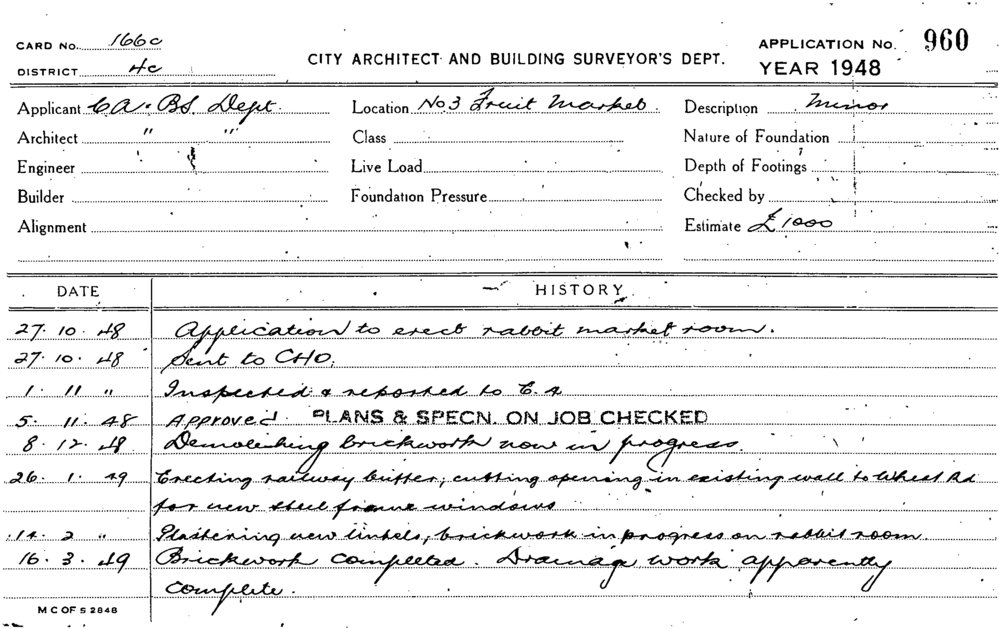 CARD No. 166c
DISTRICT 4c
CITY ARCHITECT AND BUILDING SURVEYOR'S DEPT.
APPLICATION No. 960
YEAR 1948
Applicant C.A. & B.S. Dept. Location No 3 Fruit Market Description Minor
Architect " " Class Nature of Foundation
Engineer Live Load Depth of Footings
Builder Foundation Pressure Checked by
Alignment Estimate £1000
DATE HISTORY
27. 10. 48 Application to erect rabbit market room.
27. 10. 48 Sent to CHO.
1 11 " Inspected & reported to C.A
5. 11. 48 Approved. PLANS & SPECN. ON JOB CHECKED
8. 12. 48 Demolishing brickwork now in progress
26. 1. 49 Erecting railway buffer, cutting opening in existing wall to Wheat Rd
for new steel frame windows
14. 2 " Plastering new lintels, brickwork in progress on rabbit room.
16. 3. 49 Brickwork completed. Drainage work apparently
complete.
M C OF S 2848